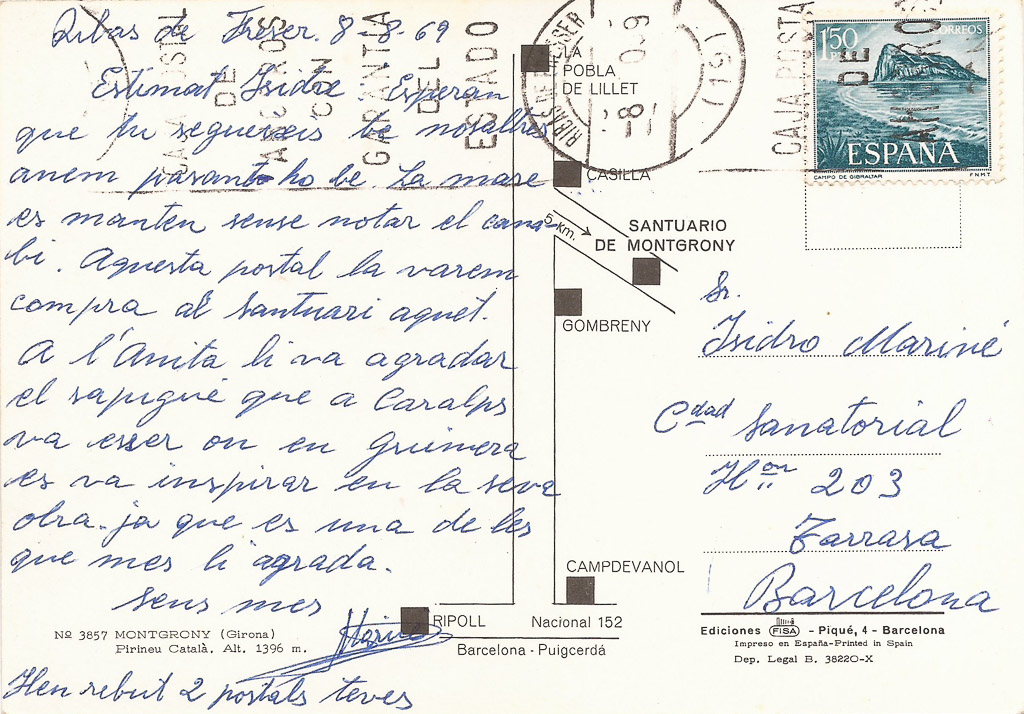 Ribas de Freser. 8-8-69
Estimat Isidre. Esperan
que tu segueixis be nosaltres
anem pasant-ho be. La mare
es manten sense notar el cana-
bi. Aquesta postal la varem
compra al Santuari aquet.
A l'Anita li va agradar
el sapigué que a Caralps
va esser on en Guimera
es va inspirar en la seva
obra. ja que es una de les
que mes li agrada.
sens mes
Hen rebut 2 postals teves
Nº 3857 MONTGRONY (Girona)
Pirineu Català. Alt. 1396 m.
LA
POBLA
DE LILLET
CASILLA
5 Km.
SANTUARIO
DE MONTGRONY
GOMBRENY
CAMPDEVANOL
RIPOLL
Nacional 152
Barcelona - Puigcerdá
CAJA POSTAL
DE
AHORROS
CON
GARANTIA
DEL
ESTADO
RIBAS DE FRESER
CAJA POSTA
DE
AHORRO
1'50
PTS
CORREOS
ESPAÑA
CAMPO DE GIBRALTAR
F N M T
Sr.
Isidro Mariné
Cdad Sanatorial
Hon 203
Tarrasa
Barcelona
Ediciones FISA - Piqué, 4 - Barcelona
Impreso en España-Printed in Spain
Dep. Legal B. 38220-X